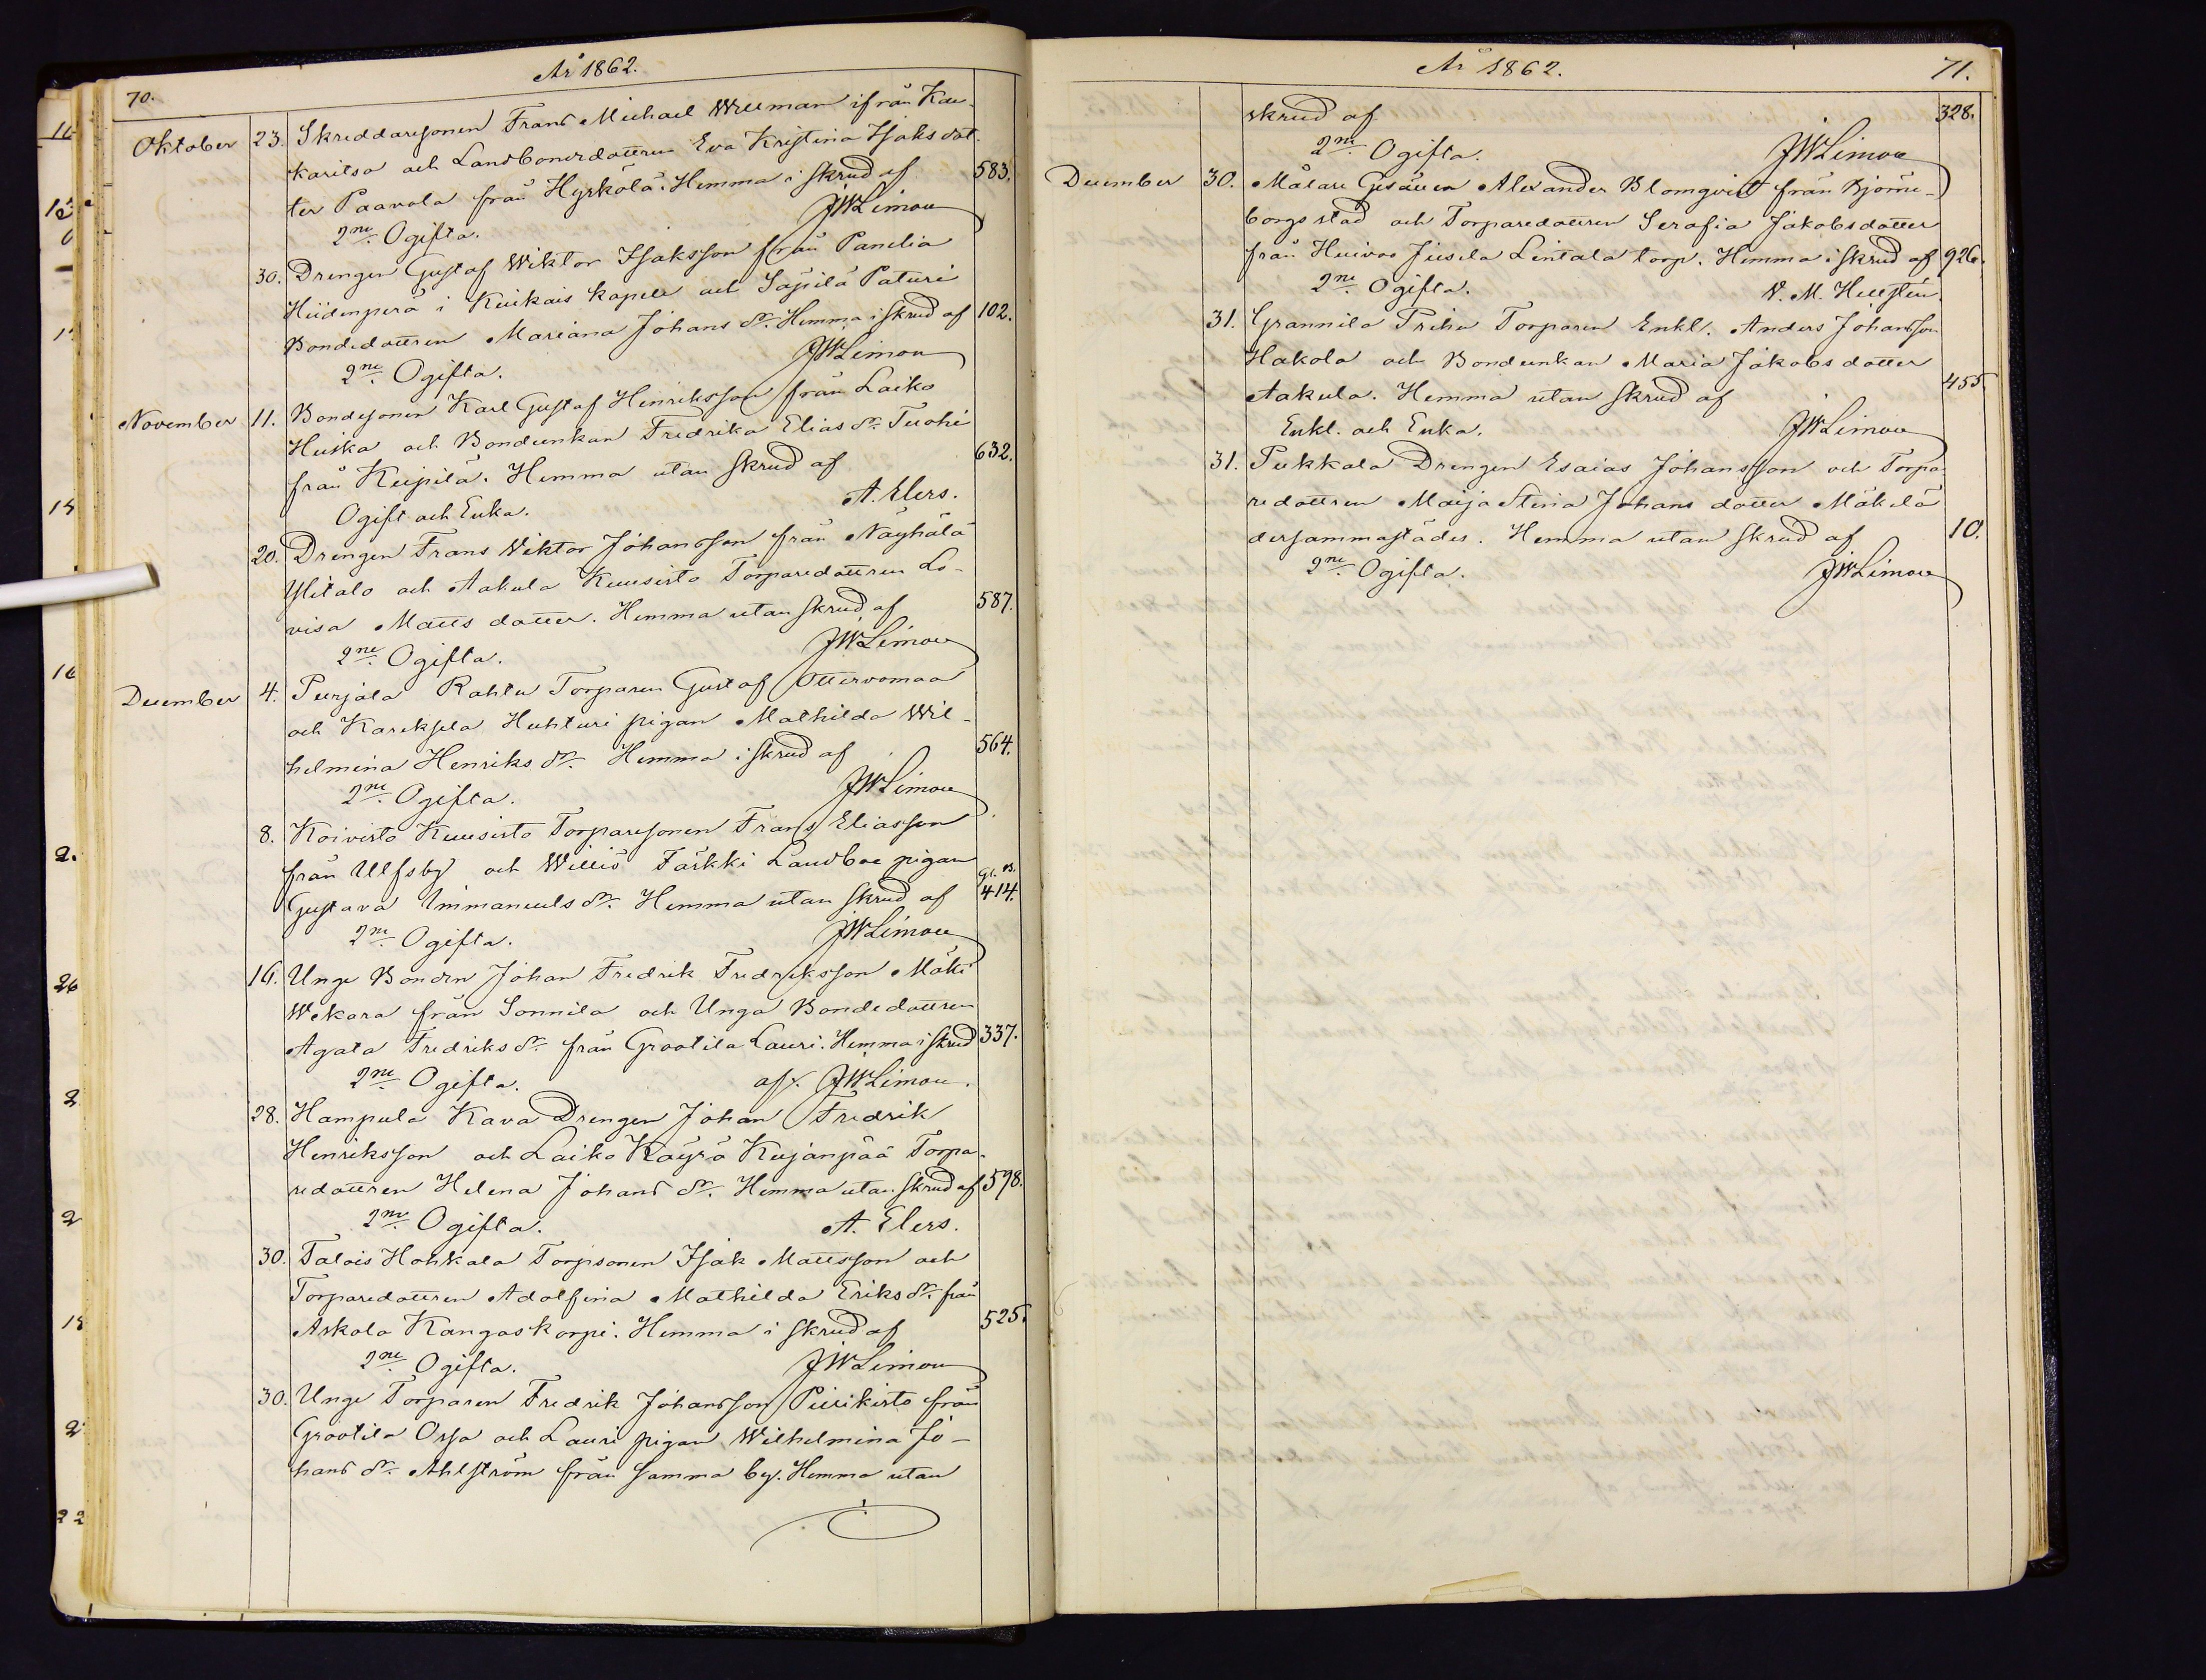 70.
År 1862.
Oktober 23. Skreddaresonen Frans Michael Willman ifrån Kau-
karitsa och Landbonedottren Eva Kristina Isaksdot-
ter Paavola från Hyrkölä. Hemma i skrud af 583.
2ne Ogifta. JWLimon
30. Drengen Gustaf Wiktor Isaksson från Panelia
Hiidenperä i Kiukais kapell och Säpilä Paturi
Bondedottren Mariana Johans dr. Hemma i skrud af 102.
2ne Ogifta. JWLimon
November 11. Bondesonen Karl Gustaf Henriksson från Laiko
Huska och Bondeenkan Fredrika Elias dr. Tuohi
från Keipilä. Hemma utan skrud af 632.
Ogift och Enka. A. Elers.
20. Drengen Frans Viktor Johansson från Näyhälä
Ylitalo och Aakula Kuusisto Torparedottren Lo-
visa Matts dotter. Hemma utan skrud af 587.
2ne Ogifta. JWLimon
December 4. Peurjala Rahtu Torparen Gustaf Ottervomaa
och Kareksela Huhturi pigan Mathilda Wil-
helmina Henriks dr. Hemma i skrud af 564.
2ne Ogifta. JWLimon
8. Koivisto Kuusisto Torparesonen Frans Eliasson
från Ulfsby och Villiö Färkki Landboe pigan
Gustava Immanuels dr. Hemma utan skrud af Gl. B. 414.
2ne Ogifta. JWLimon
16. Unge Bonden Johan Fredrik Fredriksson Mäki
Wekara från Sonnila och Unga Bondedottren
Agata Fredriks dr. från Grootila Lauri. Hemma i skrud 337.
2ne Ogifta. af JWLimon.
28. Hampula Kava Drengen Johan Fredrik
Henriksson och Laiko Käyrä Kujanpää Torpa-
redottren Helena Johans dr. Hemma utan skrud af 598.
2ne Ogifta. A. Elers.
30. Talois Hohkala Torpsonen Isak Mattsson och
Torparedottren Adolfina Mathilda Eriks dr. från
Askola Kangaskorpi. Hemma i skrud af 525.
2ne Ogifta. JWLimon
30. Unge Torparen Fredrik Johansson Piiikisto från
Grootila Ossa och Lauri pigan Wilhelmina Jo-
hans dr. Ahlström från samma by. Hemma utan
År 1862. 71.
skrud af 328.
2ne Ogifta. JWLimon
December 30. Målare Gesällen Alexander Blomqvist från Björne-
borgs stad och Torparedottren Serafia Jakobsdotter
från Huivoo Jiusila Lintala torp. Hemma i skrud af 926.
2ne Ogifta. V. M. Hellstén.
31. Grannila Prihu Torparen Enkl. Anders Johansson
Hakola och Bondeenkan Maria Jakobs dotter
Aakula. Hemma utan skrud af 455
Enkl. och Enka. JWLimon
31. Pukkala Drengen Esaias Johansson och Torpa-
redottren Maija Stina Johans dotter Mäkelä
dersammastädes. Hemma utan skrud af 10.
2ne Ogifta. JWLimon